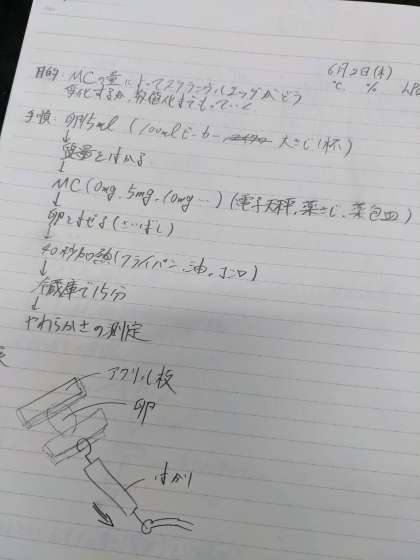 6月2日(木)
℃ % hPa
目的 MCの量によってスクランブルエッグがどう
変化するか、数値化までもっていく
手順 卵15ml (100mlビーカー 大さじ1杯)
↓
質量をはかる
↓
MC(0mg, 5mg, 10mg…) (電子天秤, 薬さじ, 薬包皿)
↓
卵をまぜる(さいばし)
↓
40秒加熱(フライパン, 油, コンロ)
↓
冷蔵庫で15分
↓
やわらかさの測定
アクリル板
卵
はかり